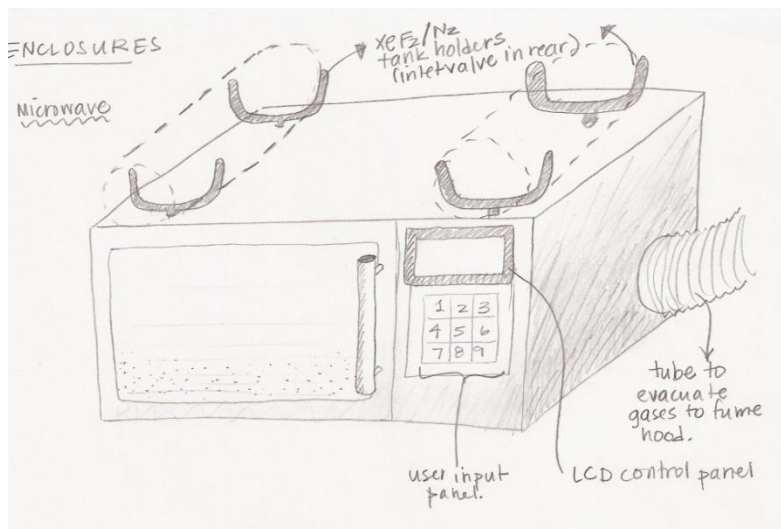 ENCLOSURES
Microwave
XeF2/N2
tank holders
(inlet valve in rear)
1 2 3
4 5 6
7 8 9
tube to
evacuate
gases to fume
hood.
user input
panel.
LCD control panel